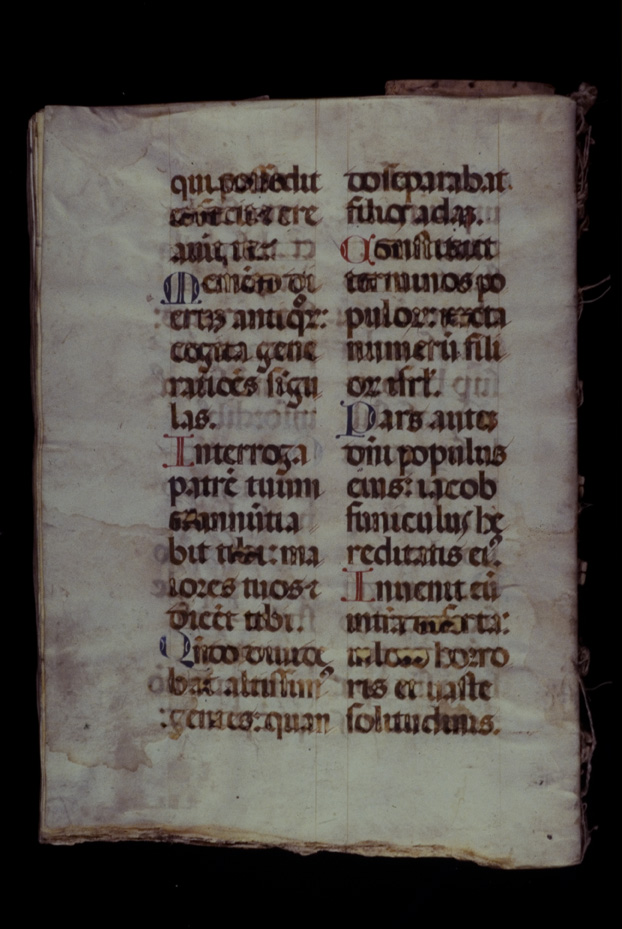 qui possedit
te⁊ fecit ⁊ cre
auit te:
Memẽto di
erũ antiq̊ꝝ:
cogita gene
ratiões sigu
las.
Interroga
patrẽ tuum
⁊ annũtia
bit tibi: ma
iores tuos ⁊
dicẽt tibi.
Qñdo diuide
bat altissim᷒
gentes: quan
do separabat
filios adaꝫ.
Constituit
terminos po
puloꝝ: iuxta
numerũ fili
oꝝ isrł.
Pars autẽ
dñi populus
eius: iacob
funiculus he
reditatis ei᷒.
Inuenit eũ
in terra deserta:
in loco horro
ris et uaste
solitudinis.